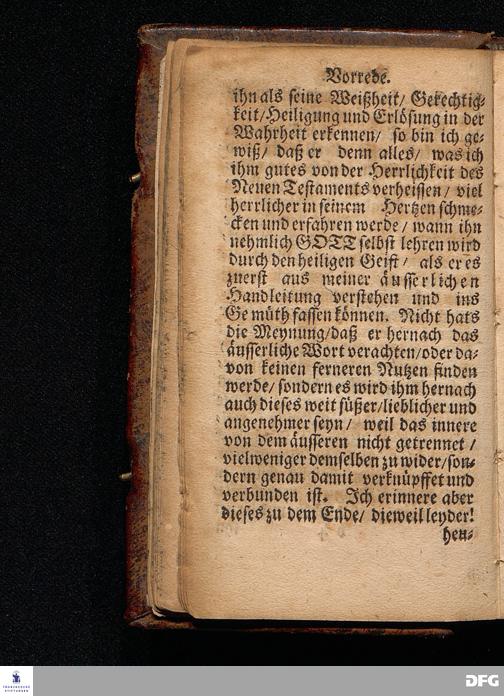 Vorrede.
ihn als seine Weißheit/ Gerechtig-
keit/Heiligung und Erlösung in der
Wahrheit erkennen/ so bin ich ge-
wiß/ daß er denn alles/ was ich
ihm gutes von der Herrlichkeit des
Neuen Testaments verheissen/ viel
herrlicher in seinem Hertzen schme-
cken und erfahren werde/ wann ihn
nehmlich GOTT selbst lehren wird
durch den heiligen Geist/ als er es
zuerst aus meiner äusserlichen
Handleitung verstehen und ins
Gemüth fassen können. Nicht hats
die Meynung/daß er hernach das
äusserliche Wort verachten/oder da-
von keinen ferneren Nutzen finden
werde/ sondern es wird ihm hernach
auch dieses weit süßer/lieblicher und
angenehmer seyn/ weil das innere
von dem äusseren nicht getrennet/
vielweniger demselben zu wider/son-
dern genau damit verknüpffet und
verbunden ist. Ich erinnere aber
dieses zu dem Ende/ dieweil leyder!
heu-
FRANCKESCHE
STIFTUNGEN
DFG